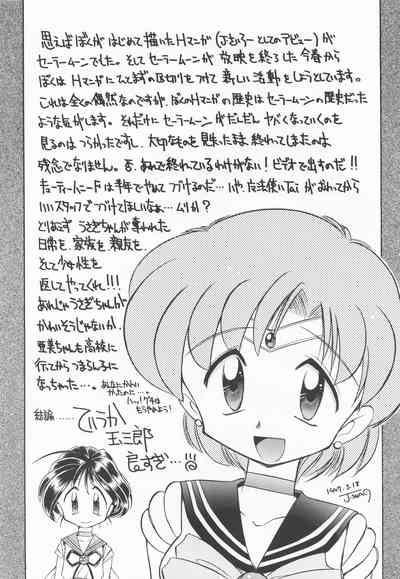 思えばぼくが はじめて描いたHマンガ(Jさいろーとしてのデビュー)が
セーラームーンでした。そしてセーラームーンが 放映を終了した今春から
ぼくは Hマンガにひとまずの区切りをつけて 新しい活動をしようとしています。
これは全くの偶然なのですが、ぼくのHマンガの歴史はセーラームーンの歴史だった
ような気がします。それだけに セーラームーンがだんだん ヤバくなっていくのを
見るのは つらかったですし、大切なものを見失ったまま 終わってしまったのは
残念でなりません。あれで終われているわけがない!ビデオで出すのだ!!
キューティーハニーFは半年でやめて つづけるのだ…いや、魔法使いTaiがおわってから
いいスタッフでつづけてほしいなぁ…ムリか?
とりあえず うさぎちゃんが奪われた
日常を、家族を、親友を、
そして少女性を
返してやってくれ!!!
あれじゃうさぎちゃんが
かわいそうじゃないか。
亜美ちゃんも高校に
行ってからつまらん子に
なっちゃった…。
あんなにかわいかったのに…。
ハッ!グチは
もうやめよう!
結論……
ていうか
玉三郎
白すぎ…
1997.3.18